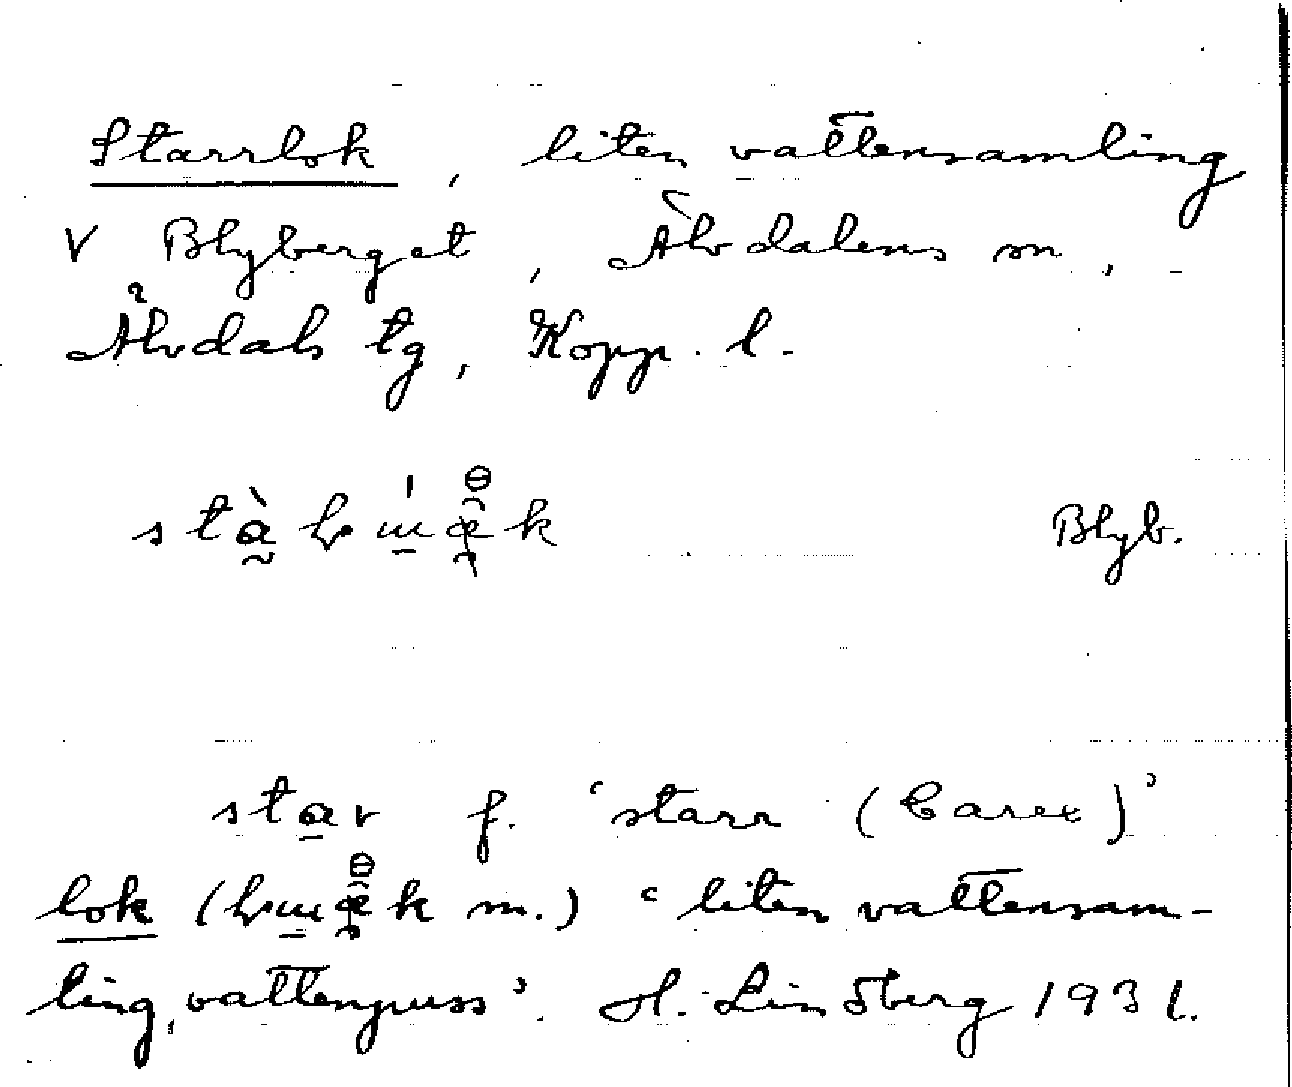 Starrlok, liten vattensamling
V Blyberget, Älvdalens sn,
Älvdals tg, Kopp. l.
Blyb.
star f. 'starr (Carex)'
lok ( k m.) 'liten vattensam-
ling, vattenpuss'. H. Lindberg 1931.